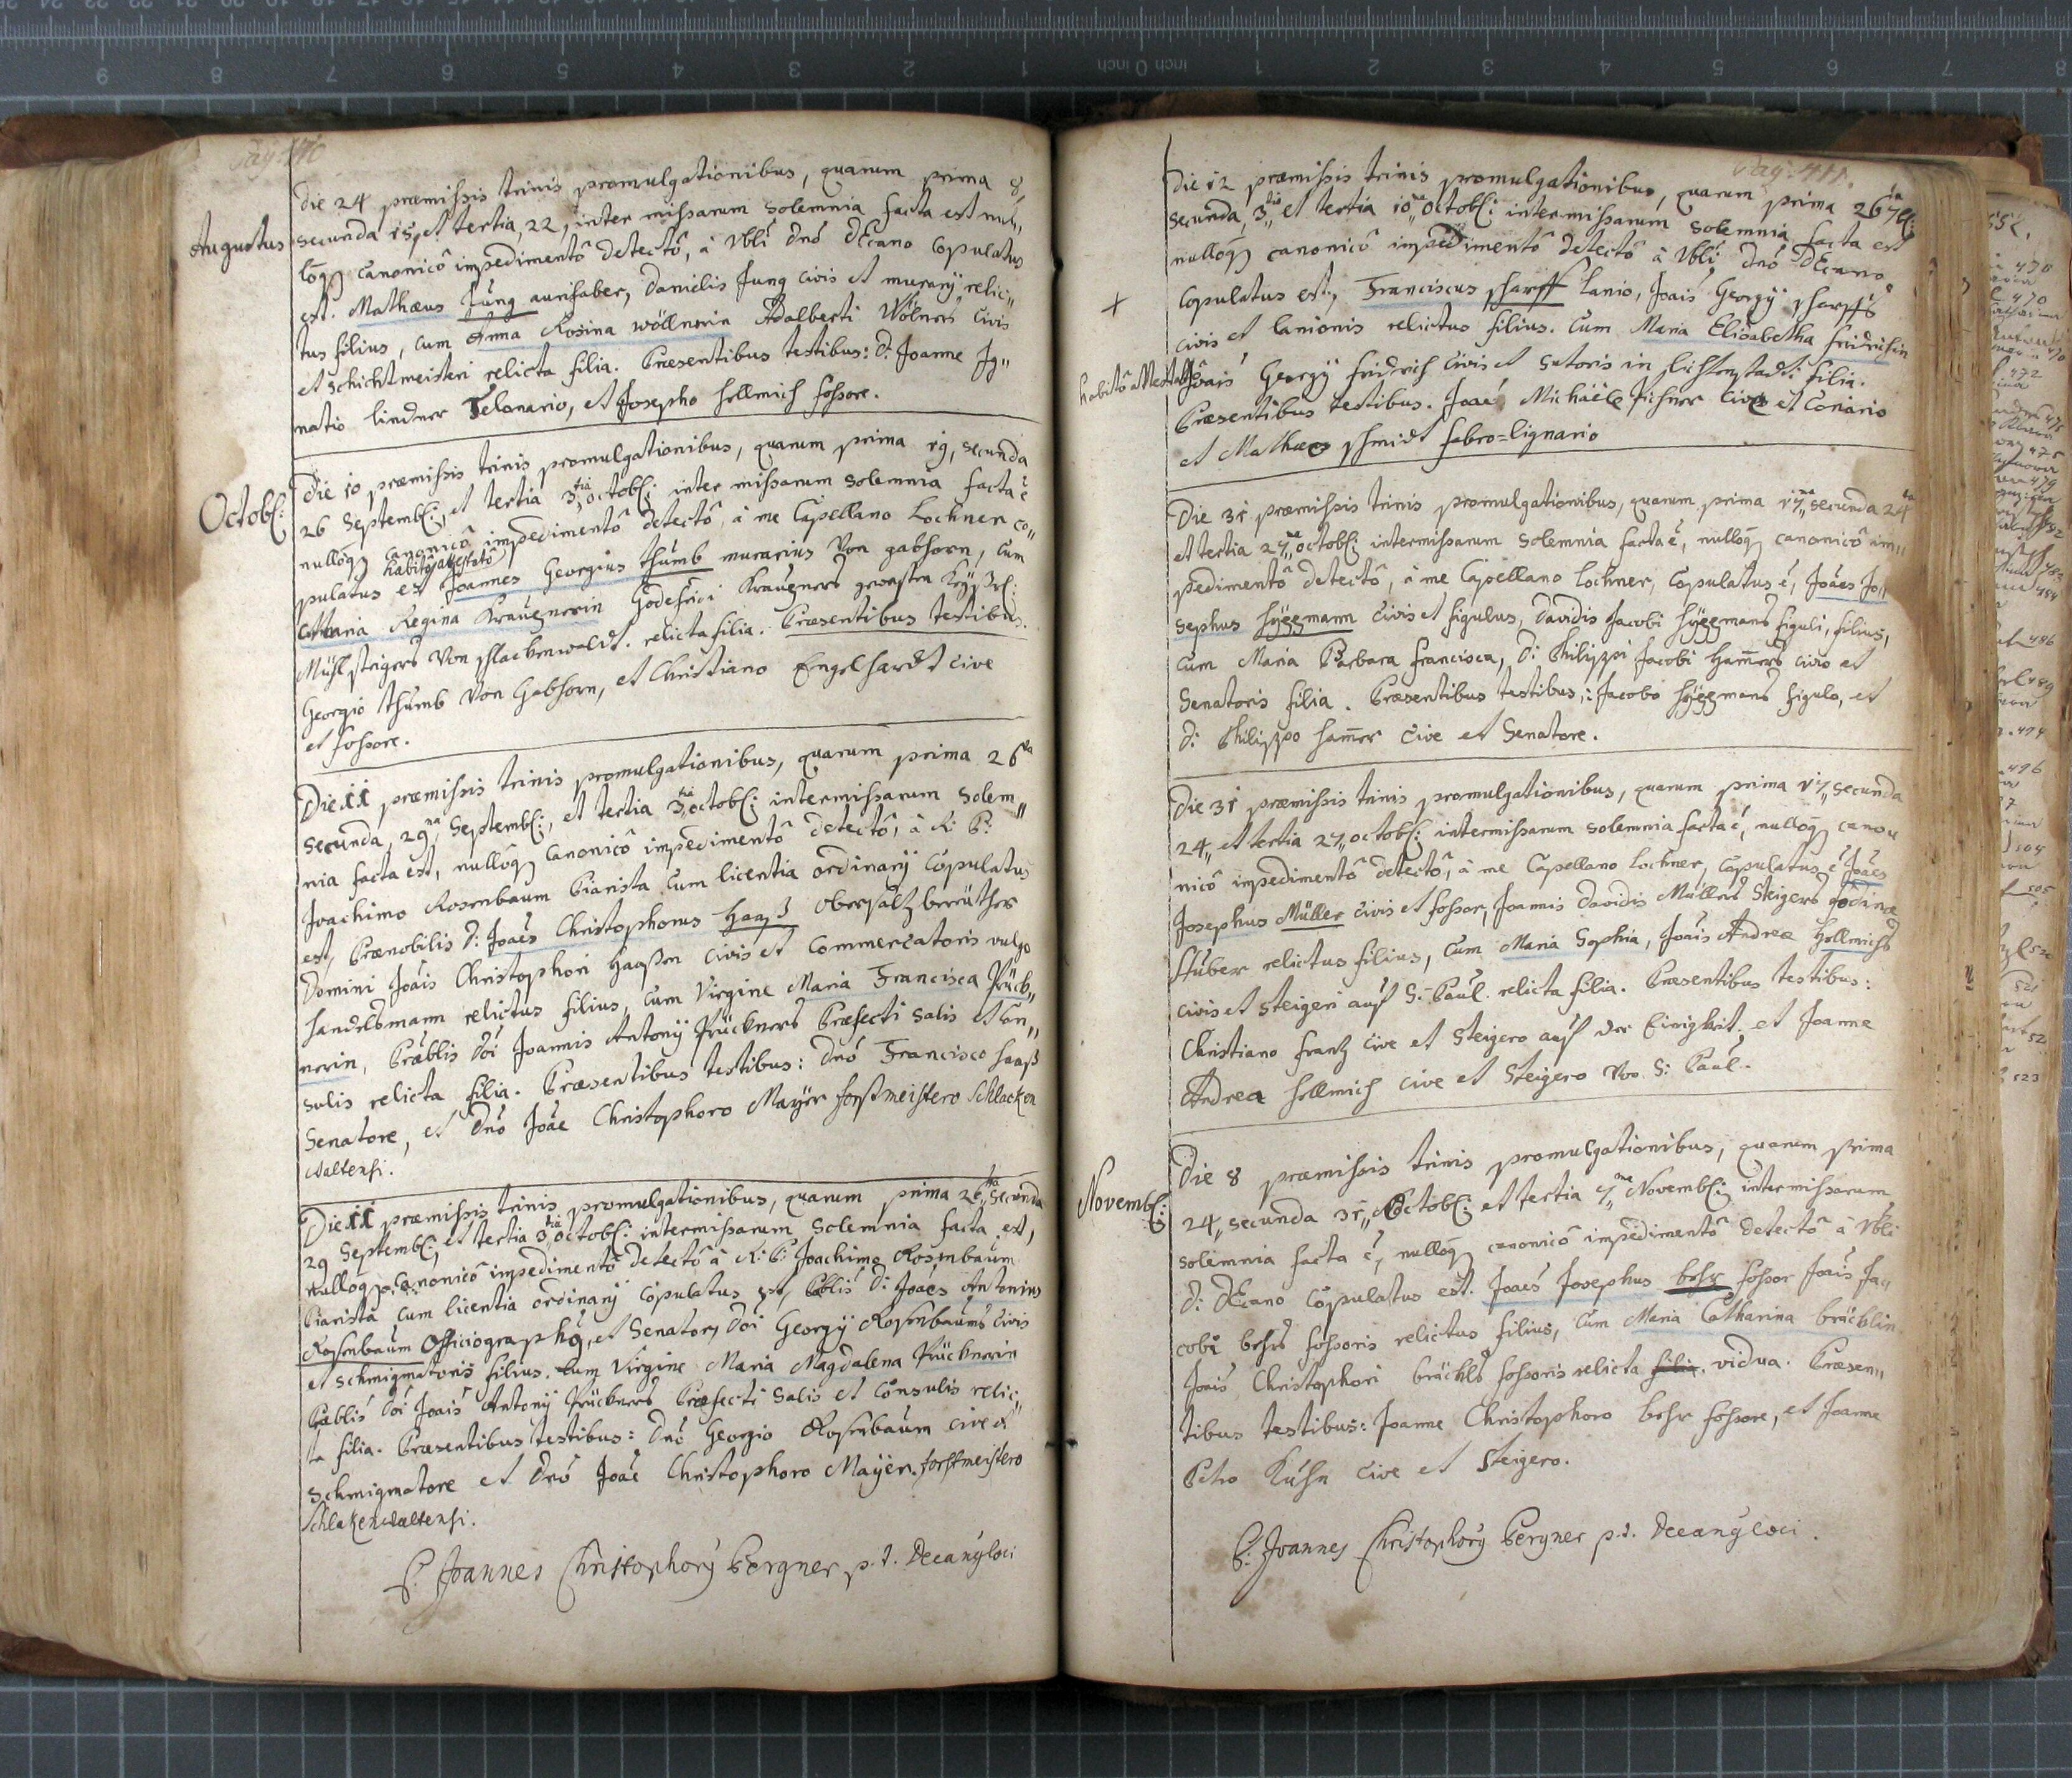 Die 24 præmissis trinis promulgationibus, quarum prima 8,
Augustus
secunda 15, et tertia, 22, inter missarum solemnia facta est nul„
lóq canonicô impedimentô detectô, à Vbli Dnó DEcano Copulatus
est. Mathæus Jung aurifaber, Danielis Jung civis et murarÿ relic„
tus filius, cum Anna Rosina wöllnerin Adalberti Wölners Civis
et schichtmeisteri relicta filia. Præsentibus testibus: D: Joanne Ig„
natio lindner Telonario, et Josepho hellmich fossore.
Octobr:
Die 10 præmissis trinis promulgationibus, quarum prima 19, secunda
26 Septembr:, et tertia 3tia octobr: inter missarum solemnia facta ē
nullóq canonicô impedimentô detectô, à me Capellano Lochner co„
habitô attestatô
pulatus est Joannes Georgius thumb murarius Von gabhorn, cum
Maria Regina Kraugnerin Godefridi Kraugners gewesten
Mühlsteigers Von schlackenwaldt. relicta filia. Præsentibus testibus.
Georgio thumb Von Gabhorn, et Christiano Engelhardt Cive
et fossore.
Die 11 præmissis trinis promulgationibus, quarum prima 26ta
secunda, 29na, Septembr:, et tertia 3tia octobr: inter missarum solem„
nia facta est, nullóq canonicô impedimentô detectô, à R: P:
Joachimo Rosenbaum Piarista Cum licentia ordinarÿ Copulatus
est, Prænobilis D: Joaēs Christophorus Haaß obersaltzbereüther
Domini Joaīs Christophori Haaßen Civis et Commercatoris vulgo
handelsmann relictus filius, cum Virgine Maria Francisca Prück„
nerin, Præblis Dōi Joannis Antonÿ Prückners Præfecti Salis et Con„
sulis relicta filia. Præsentibus testibus: Dnó Francisco haaß
Senatore, et Dnó Joāe Christophoro Mayer forstmeistero Schlacken
waltensi.
Die 11 præmissis trinis promulgationibus, quarum prima 26ta secunda
29 Septembr:, et tertia 3tia octobr: inter missarum solemnia facta est,
nullóq canonicô impedimentô detectô à R: P: Joachimo Rosenbaum
Piarista Cum licentia ordinarÿ Copulatus est, Præblis D: Joāes Antonius
Rosenbaum Officiographq, et Senator, Dōi Georgÿ Rosenbaums Civis
et schmigmatoris filius. Cum Virgine Maria Magdalena Prücknerin
Præblis Dōi Joais Antonÿ Prückners Præfecti Salis et Consulis relic„
ta filia. Præsentibus testibus: Dnó Georgio Rosenbaum cive et
Schmigmatore et Dnó Joāe Christophoro Mayer. forstmeistero
Schlakenwaltensi.
P: Joannes Christophorq Pergner p.t. Decanq loci
Pag: 411.
Die 12 præmissis trinis promulgationibus, quarum prima 26ta 7br:
secunda, 3tia et tertia 10ma octobr: inter missarum solemnia facta est
nullóq canonicô impedimentô detectô à Vbli Dnó DEcano
+
Copulatus est, Franciscus scharff Lanio, Joais Georgÿ scharffs
civis et lanionis relictus filius. Cum Maria Elisabetha fridrichin
habitô attestatô
Joais Georgÿ fridrich Civis et Sutoris in lichtenstadt: filia.
Præsentibus testibus. Joaē Michäele fischer Cive et Coriario
et Mathæo schmidt fabro=lignario
Die 31 præmissis trinis promulgationibus, quarum prima 17ma secunda 24ta
et tertia 27ma octobr: inter missarum solemnia facta ē, nullóq canonicô im„
pedimentô detectô, à me Capellano Lochner, Copulatus ē, Joāes Jo„
sephus Hÿggmann Civis et figulus, Davidis Jacobi Hÿggmans figuli, filius,
Cum Maria Barbara Francisca, D: Philippi Jacobi Ham̄ers Civis et
Senatoris filia. Præsentibus testibus,: Jacobo Hÿggmans figulo, et
D: Philippo ham̄er Cive et Senatore.
Die 31 præmissis trinis promulgationibus, quarum prima 17, secunda
24, et tertia 27, octobr: inter missarum solemnia facta ē, nullóq cano„
nicô impedimentô detectô, à me Capellano Lochner, Copulatus ē Joāes
Josephus Müller Civis et fossor, Joannis Davidis Müllers Steigers
Stuber relictus filius, Cum Maria Sophia, Joais Andreæ Hellmichs
civis et steigeri auf S: Paul. relicta filia. Præsentibus testibus:
Christiano Frantz Cive et Steigero auf der Einigkeit, et Joanne
Andrea hellmich Cive et Steigero Vo S: Paul.
Novembr:
Die 8 præmissis trinis promulgationibus, quarum prima
24, secunda 31, Octobr: et tertia 7ma Novembr: inter missarum
solemnia facta ē, nullóq canonicô impedimentô detectô à Vbli
D: DEcano Copulatus est. Joaēs Josephus behr fossor Joais Ja„
cobi behrs fossoris relictus filius, Cum Maria Catharina bräcklin
Joais Christophori bräckls fossoris relicta filia. vidua. Præsen„
tibus testibus: Joanne Christophoro behr fossore, et Joanne
Petro Kuhn Cive et Steigero.
P: Joannes Christophorq Pergner p.t. Decanq loci.